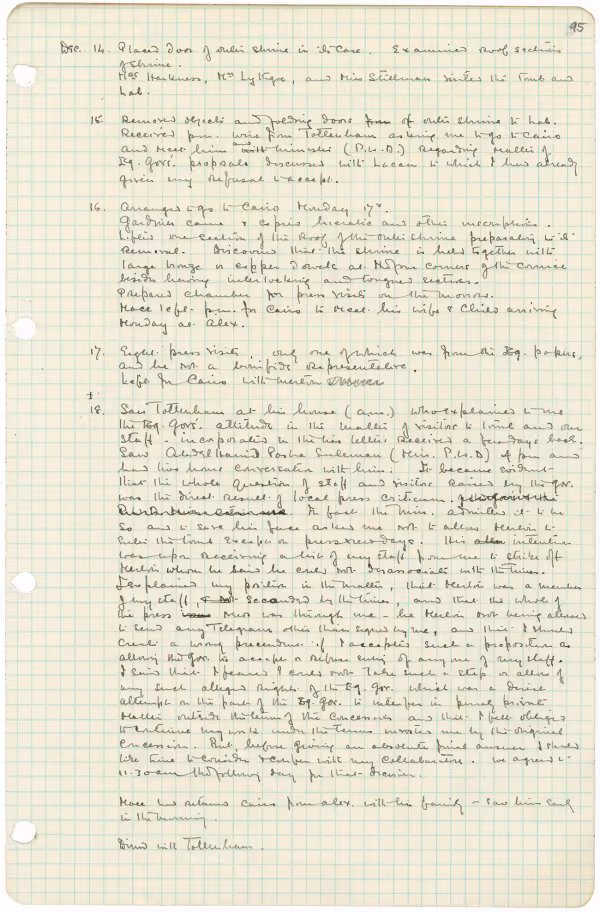 95
Dec. 14. Placed door of outer shrine in its case. Examined roof sections
of shrine.
Mrs Harkness, Mrs Lythgoe, and Miss Stillman visited the Tomb and
Lab.
15. Removed objects and folding doors from of outer shrine to Lab.
Received p.m. wire from Tottenham asking me to go to Cairo
and meet him and with Minister (P.W.D.) regarding matter of
Eg. Govs'. proposals discussed with Lacau to which I had already
given my refusal to accept.
16. Arranged to go to Cairo Monday 17th.
Gardiner came & copied hieratic and other inscriptions.
Lifted one section of the roof of the outer shrine preparatory to its
removal. Discovered that the shrine is held together with
large bronze or copper dowels at the four corners of the cornice
beside having interlocking and tongued sections.
Prepared chamber for press visits on the morrow.
Mace left p.m. for Cairo to meet his wife & child arriving
Monday at Alex.
17. Eight press visits, only one of which was from the Eg. papers,
and he not a bonifide representative.
Left for Cairo with Merton
18. Saw Tottenham at his house (a.m.) who explained to me
the Eg. Govs'. attitude in the matter of visitors to tomb and our
staff - incorporated in the letter received a few days back.
Saw Abdel Hamid Pasha Suleman (Min. P.W.D) 4 pm and
had two hours conversation with him. It became evident
that the whole question of staff and visitors raised by the Gov.
was the direct result of local press criticism.
In fact the Min. admitted it to be
so and to save his face asked me not to allow Merton to
enter the tomb except on press view days. His intention
was upon receiving a list of my staff from me to strike off
Merton whom he said he could not disassociate with the Times.
I explained my position in the matter, that Merton was a member
of my staff, seconded by the Times, and that the whole of
the press news was through me - he Merton not being allowed
to send any Telegram other than signed by me, and that I should
create a wrong precedent if I accepted such a proposition as
allowing the Gov. to accept or refuse entry of any one of my staff.
I said that I feared I could not take such a step or allow of
any such alleged rights of the Eg. Gov. which was a direct
attempt on the part of the Eg. Gov. to interfere in purely private
matter outside the terms of the Concession and that I felt obliged
to continue my work under the terms invested me by the original
Concession. But, before giving an absolute final answer I should
like time to consider & confer with my collaborators. We agreed to
11.30 am the following day for that decision.
Mace had returned Cairo from Alex. with his family - saw him early
in the morning.
Dined with Tottenham.